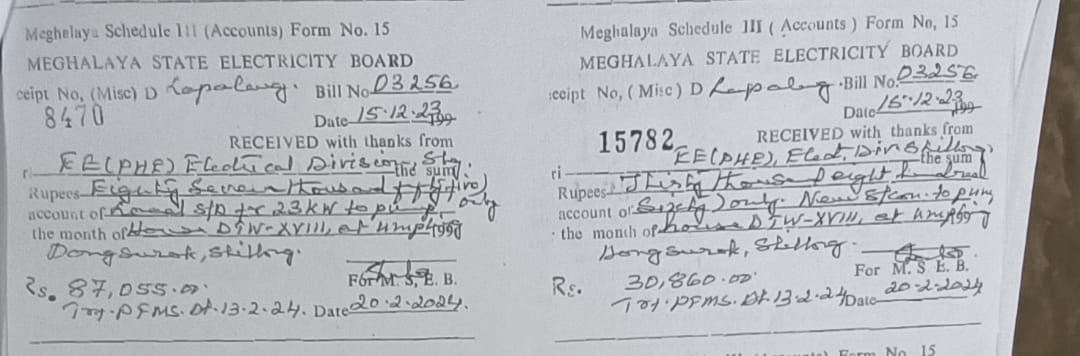 Meghalaya Schedule III (Accounts) Form No. 15
MEGHALAYA STATE ELECTRICITY BOARD
ceipt No, (Misc) D Lapalang. Bill No 03256
8470
Date 15.12.23 199
RECEIVED with thanks from
r EE(PHE) Electrical Division, Shg. the sum
Rupees Eighty Seven thousand fifty five)
account of S/D for 23KW to pump, only
the month of House DTW-XVIII, at Umpling
Dongsurok, Shillong.
For M. S, E. B.
Rs. 87,055.00
Try. PFMS. Dt. 13.2.24. Date 20.2.2024.
Meghalaya Schedule III ( Accounts ) Form No, 15
MEGHALAYA STATE ELECTRICITY BOARD
ceipt No, ( Misc ) D Lapalang. Bill No. 03256
Date 15.12.23 199
15782
RECEIVED with thanks from
ri EE(PHE), Elect. Div Shillong, the sum
Rupees Thirty thousand eight hundred
account of Sixty) only. New S/con. to pump
the month of house DTW-XVIII, at Umpling
Dongsurok, Shillong.
For M. S E. B.
Rs. 30,860.00
Try. PFMS. Dt. 13.2.24 Date 20.2.2024
Form No. 15